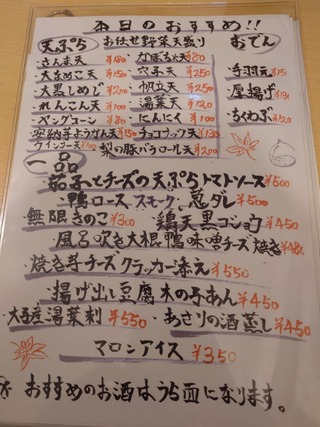 本日のおすすめ!!
天ぷら お任せ野菜天盛り おでん
さんま天 ¥180 かぼちゃ天 ¥80
穴子天 ¥250 手羽元
大黒しめじ ¥200 帆立天 ¥250 厚揚げ
れんこん天 ¥100 湯葉天 ¥120 ちくわぶ
ベーグコーン ¥80 にんにく ¥100
安納芋ようかん天 ¥150 チョコナッツ天 ¥130
ウインナー天 ¥100 梨の豚バラロール天 ¥200
一品
茄子とチーズの天ぷらトマトソース ¥500
鴨ロース、スモーク、葱ダレ ¥500
無限きのこ ¥300 鶏天黒コショウ ¥450
風呂吹き大根鴨味噌チーズ焼き ¥480
焼き芋チーズクラッカー添え ¥550
揚げ出し豆腐木の子あん ¥450
大子産湯葉刺 ¥550 あさりの酒蒸し ¥450
マロンアイス ¥350
おすすめのお酒はうら面になります。